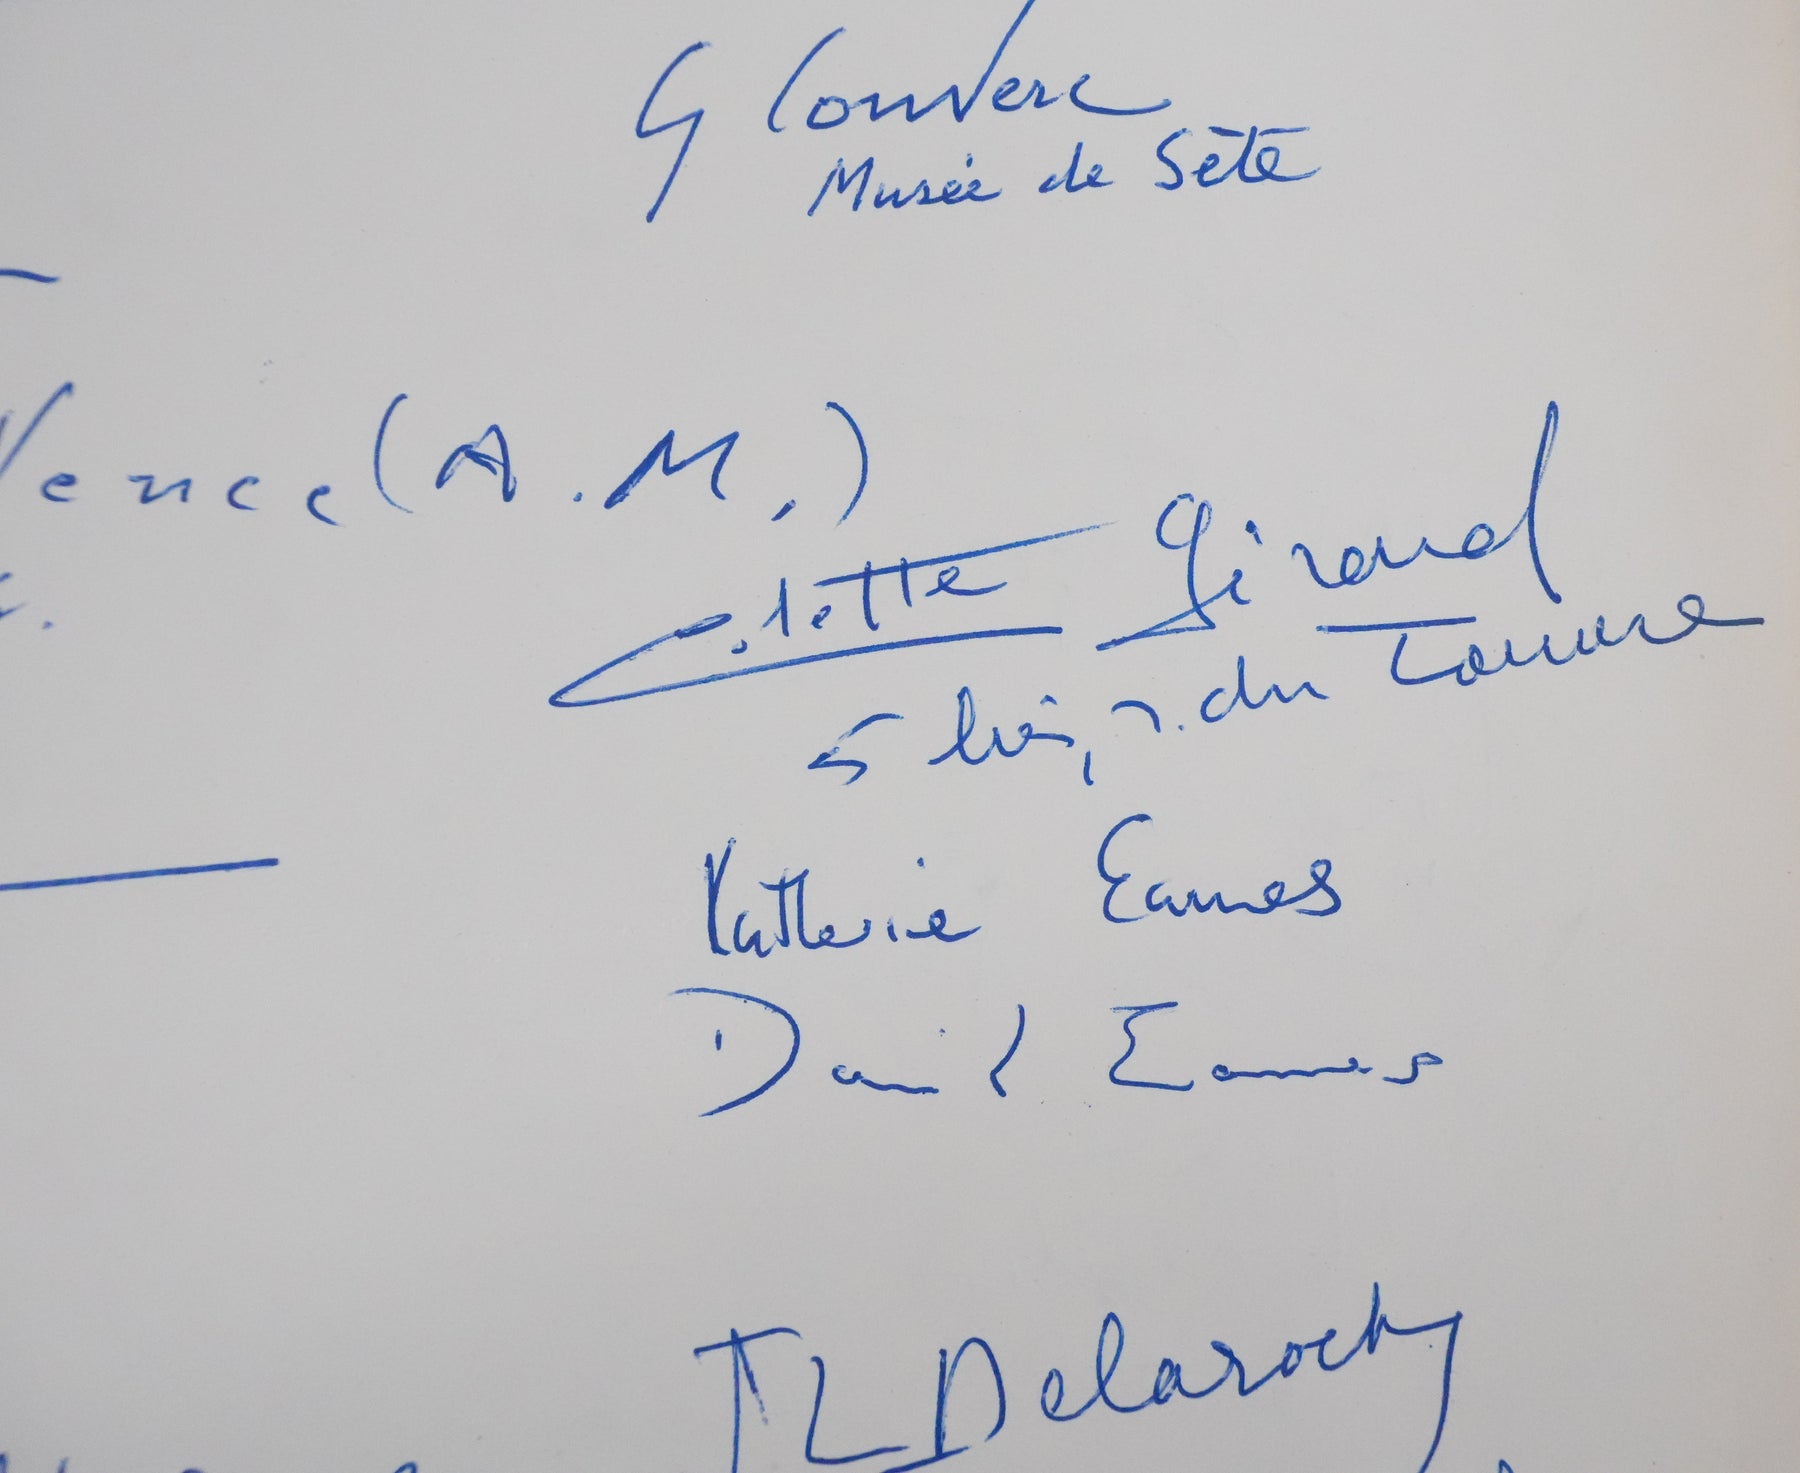 Musée de Sète
Vence (A.M.)
Colette Giraud
5 bis, r. du
Katherine Eames
David Eames
Delaroche